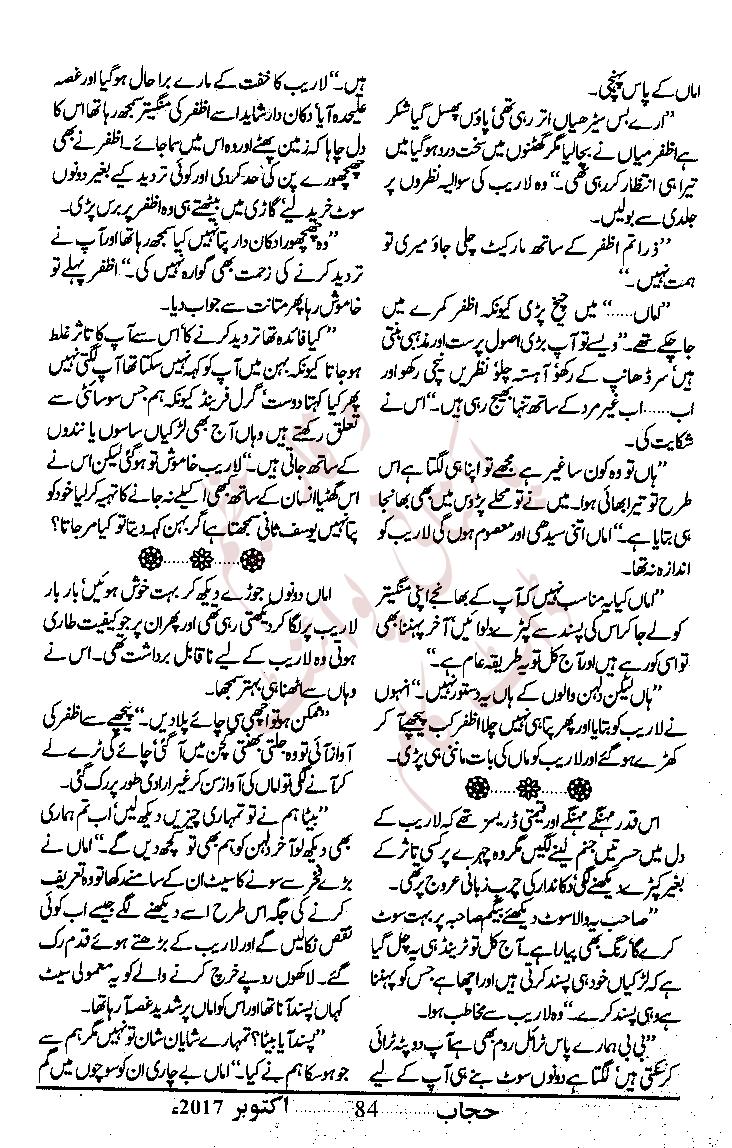 اماں کے پاس پہنچی۔
”ارے بس سیڑھیاں اتر رہی تھی‘ پاؤں پھسل گیا شکر
ہے اظفر میاں نے بچالیا مگر گھٹنوں میں سخت درد ہوگیا میں
تیرا ہی انتظار کررہی تھی۔“ وہ لاریب کی سوالیہ نظروں پر
جلدی سے بولیں۔
”ذرا تم اظفر کے ساتھ مارکیٹ چلی جاؤ میری تو
ہمت نہیں۔“
”اماں.....“ میں چیخ پڑی کیونکہ اظفر کمرے میں
جاچکے تھے۔ ”ویسے تو آپ بڑی اصول پرست اور مذہبی بنتی
ہیں‘ سر ڈھانپ کے رکھو‘ آہستہ چلو‘ نظریں نیچی رکھو اور
اب......اب غیر مرد کے ساتھ تنہا بھیج رہی ہیں۔“ اس نے
شکایت کی۔
”ہاں تو وہ کون سا غیر ہے مجھے تو اپنا ہی لگتا ہے اس
طرح تو تیرا بھائی ہوا۔ میں نے تو محلے پڑوس میں بھی بھانجا
ہی بتایا ہے۔“ اماں اتنی سیدھی اور معصوم ہوں گی لاریب کو
اندازہ نہ تھا۔
”اماں کیا یہ مناسب نہیں کہ آپ کے بھانجے اپنی منگیتر
کو لے جاکر اس کی پسند سے کپڑے دلوائیں‘ آخر پہننا بھی
تو اسی کو ہے ہیں اور آج کل تو یہ طریقہ عام ہے۔“
”ہاں لیکن دلہن والوں کے ہاں یہ دستور نہیں۔“ انہوں
نے لاریب کو بتایا اور پھر پتا ہی نہیں چلا اظفر کب پیچھے آ کر
کھڑے ہوگئے اور لاریب کو ماں کی بات ماننی ہی پڑی۔
۞......۞......۞
اس قدر مہنگے مہنگے اور قیمتی ڈریسز تھے کہ لاریب کے
دل میں حسرتیں جنم لینے لگیں مگر وہ چہرے پر کسی تاثر کے
بغیر کپڑے دیکھنے لگی‘ دکاندار کی چرب زبانی عروج پر تھی۔
”صاحب یہ والا سوٹ دیکھئے بیگم صاحبہ پر بہت سوٹ
کرے گا‘ رنگ بھی پیارا ہے۔ آج کل تو ٹرینڈ ہی یہ چل گیا
ہے کہ لڑکیاں خود ہی پسند کرتی ہیں اور اچھا ہے جس کو پہننا
ہے وہی پسند کرے۔“ وہ لاریب سے مخاطب ہوا۔
”بی بی ہمارے پاس ٹرائل روم بھی ہے آپ دوپٹہ ٹرائی
کرسکتی ہیں‘ لگتا ہے دونوں سوٹ بنے ہی آپ کے لیے
ہیں۔“ لاریب کا خفت کے مارے برا حال ہوگیا اور غصہ
علیحدہ آیا‘ دکان دار شاید اسے اظفر کی منگیتر سمجھ رہا تھا اس کا
دل چاہا کہ زمین پھٹے اور وہ اس میں سما جائے۔ اظفر نے بھی
چھچھورے پن کی حد کردی اور کوئی تردید کے بغیر دونوں
سوٹ خرید لیے‘ گاڑی میں بیٹھتے ہی وہ اظفر پر برس پڑی۔
”وہ چھچھورا دکان دار پتا نہیں کیا سمجھ رہا تھا اور آپ نے
تردید کرنے کی زحمت بھی گوارہ نہیں کی۔“ اظفر پہلے تو
خاموش رہا پھر متانت سے جواب دیا۔
”کیا فائدہ تھا تردید کرنے کا‘ اس سے آپ کا تاثر غلط
ہوجاتا کیونکہ بہن میں آپ کو کہہ نہیں سکتا تھا آپ لگتی نہیں
پھر کیا کہتا دوست‘ گرل فرینڈ کیونکہ ہم جس سوسائٹی سے
تعلق رکھتے ہیں وہاں آج بھی لڑکیاں ساسوں یا نندوں
کے ساتھ جاتی ہیں۔“ لاریب خاموش تو ہوگئی لیکن اس نے
اس گھٹیا انسان کے ساتھ کبھی اکیلے نہ جانے کا تہیہ کرلیا خود کو
پتا نہیں یوسف ثانی سمجھتا ہے اگر بہن کہہ دیتا تو کیا مرجاتا؟
۞......۞......۞
اماں دونوں جوڑے دیکھ کر بہت خوش ہوئیں‘ بار بار
لاریب پر لگا کر دیکھتی رہی تھی اور پھر ان پر جو کیفیت طاری
ہوئی وہ لاریب کے لیے ناقابل برداشت تھی۔ اس نے
وہاں سے اٹھنا ہی بہتر سمجھا۔
”ممکن ہو تو اچھی سی چائے پلا دیں۔“ پیچھے سے اظفر کی
آواز آئی تو وہ جلتی بھنتی کچن میں آگئی‘ چائے کی ٹرے لے
کر آنے لگی تو اماں کی آواز سن کر غیر ارادی طور پر رک گئی۔
”بیٹا ہم نے تو تمہاری چیزیں دیکھ لیں‘ اب تم ہماری
بھی دیکھ لو آخر دلہن کو ہم بھی تو کچھ دیں گے۔“ اماں نے
بڑے فخر سے سونے کا سیٹ ان کے سامنے رکھا تو وہ تعریف
کرنے کی جگہ اس طرح اسے دیکھنے لگے جیسے اب کوئی
نقص نکالیں گے اور لاریب کے بڑھتے ہوئے قدم رک
گئے۔ لاکھوں روپے خرچ کرنے والے کو یہ معمولی سیٹ
کہاں پسند آنا تھا اور اس کو اماں پر شدید غصہ آرہا تھا۔
”پسند آیا بیٹا؟ تمہارے شایان شان تو نہیں مگر ہم سے
جو ہوسکا ہم نے کیا۔“ اماں بے چاری ان کو سوچوں میں گم
حجاب............84............اکتوبر 2017ء